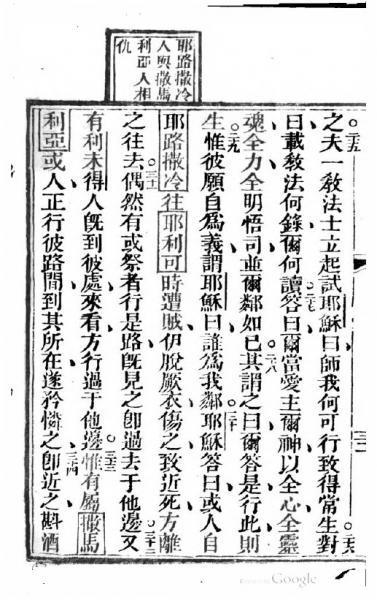 耶路撒冷
人與撒馬
利亞人相
仇
○二五之夫一教法士立起試耶穌曰師我何可行致得常生○二六對
曰載教法何錄爾何讀○二七答曰爾當愛主爾神以全心全靈
魂全力全明悟司並爾鄰如己○二八其謂之曰爾答是行此則
生○二九惟彼願自為義謂耶穌曰誰為我鄰○三十耶穌答曰或人自
耶路撒冷往耶利可時遭賊伊脫厥衣傷之致近死方離
之往去○三一偶然有或祭者行是路既見之卽過去于他邊○三二又
有利未得人既到彼處來看方行過于他邊○三三惟有屬撒馬
利亞或人正行彼路間到其所在遂矜憐之○三四卽近之斟酒
Google